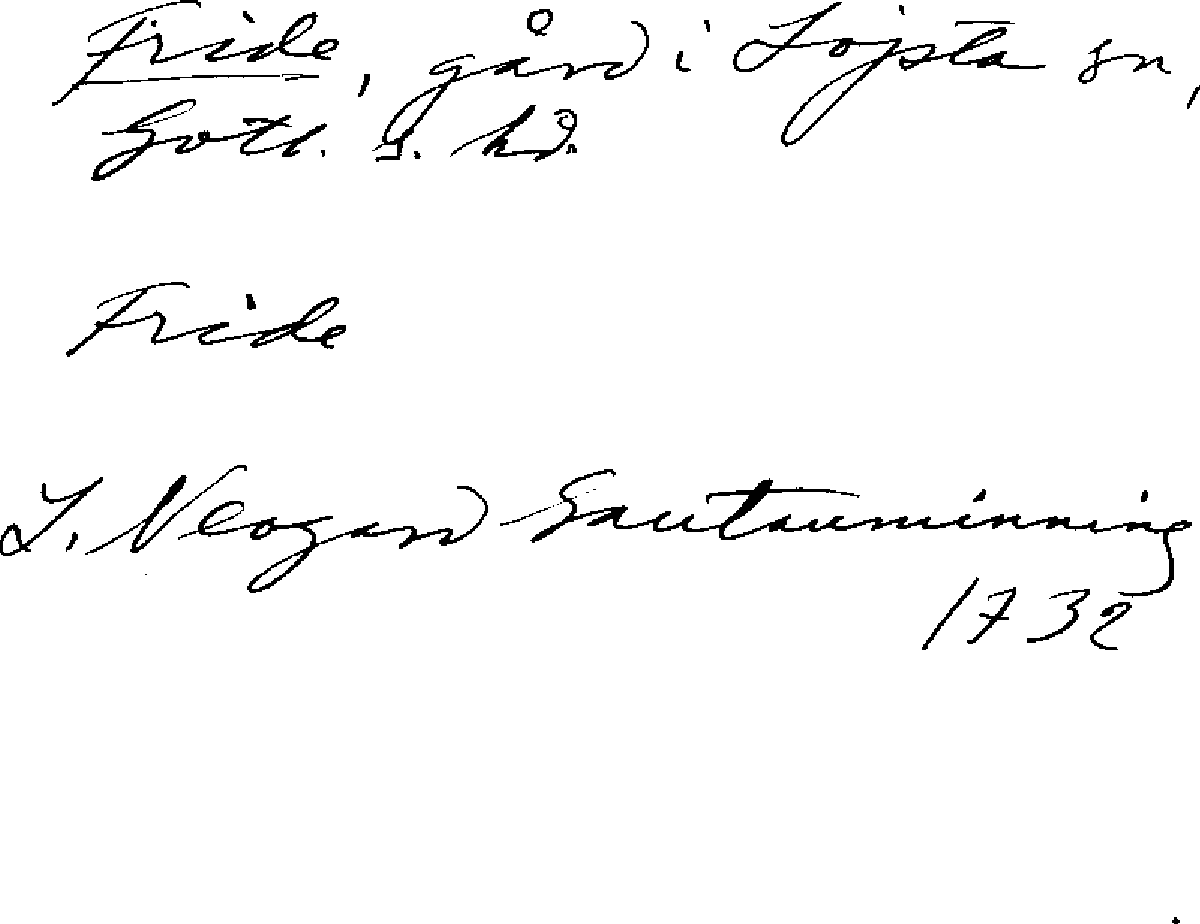 Fride, gård i Lojsta sn,
Gotl. s. hd.
Fride
L. Neogard Gautauminning
1732